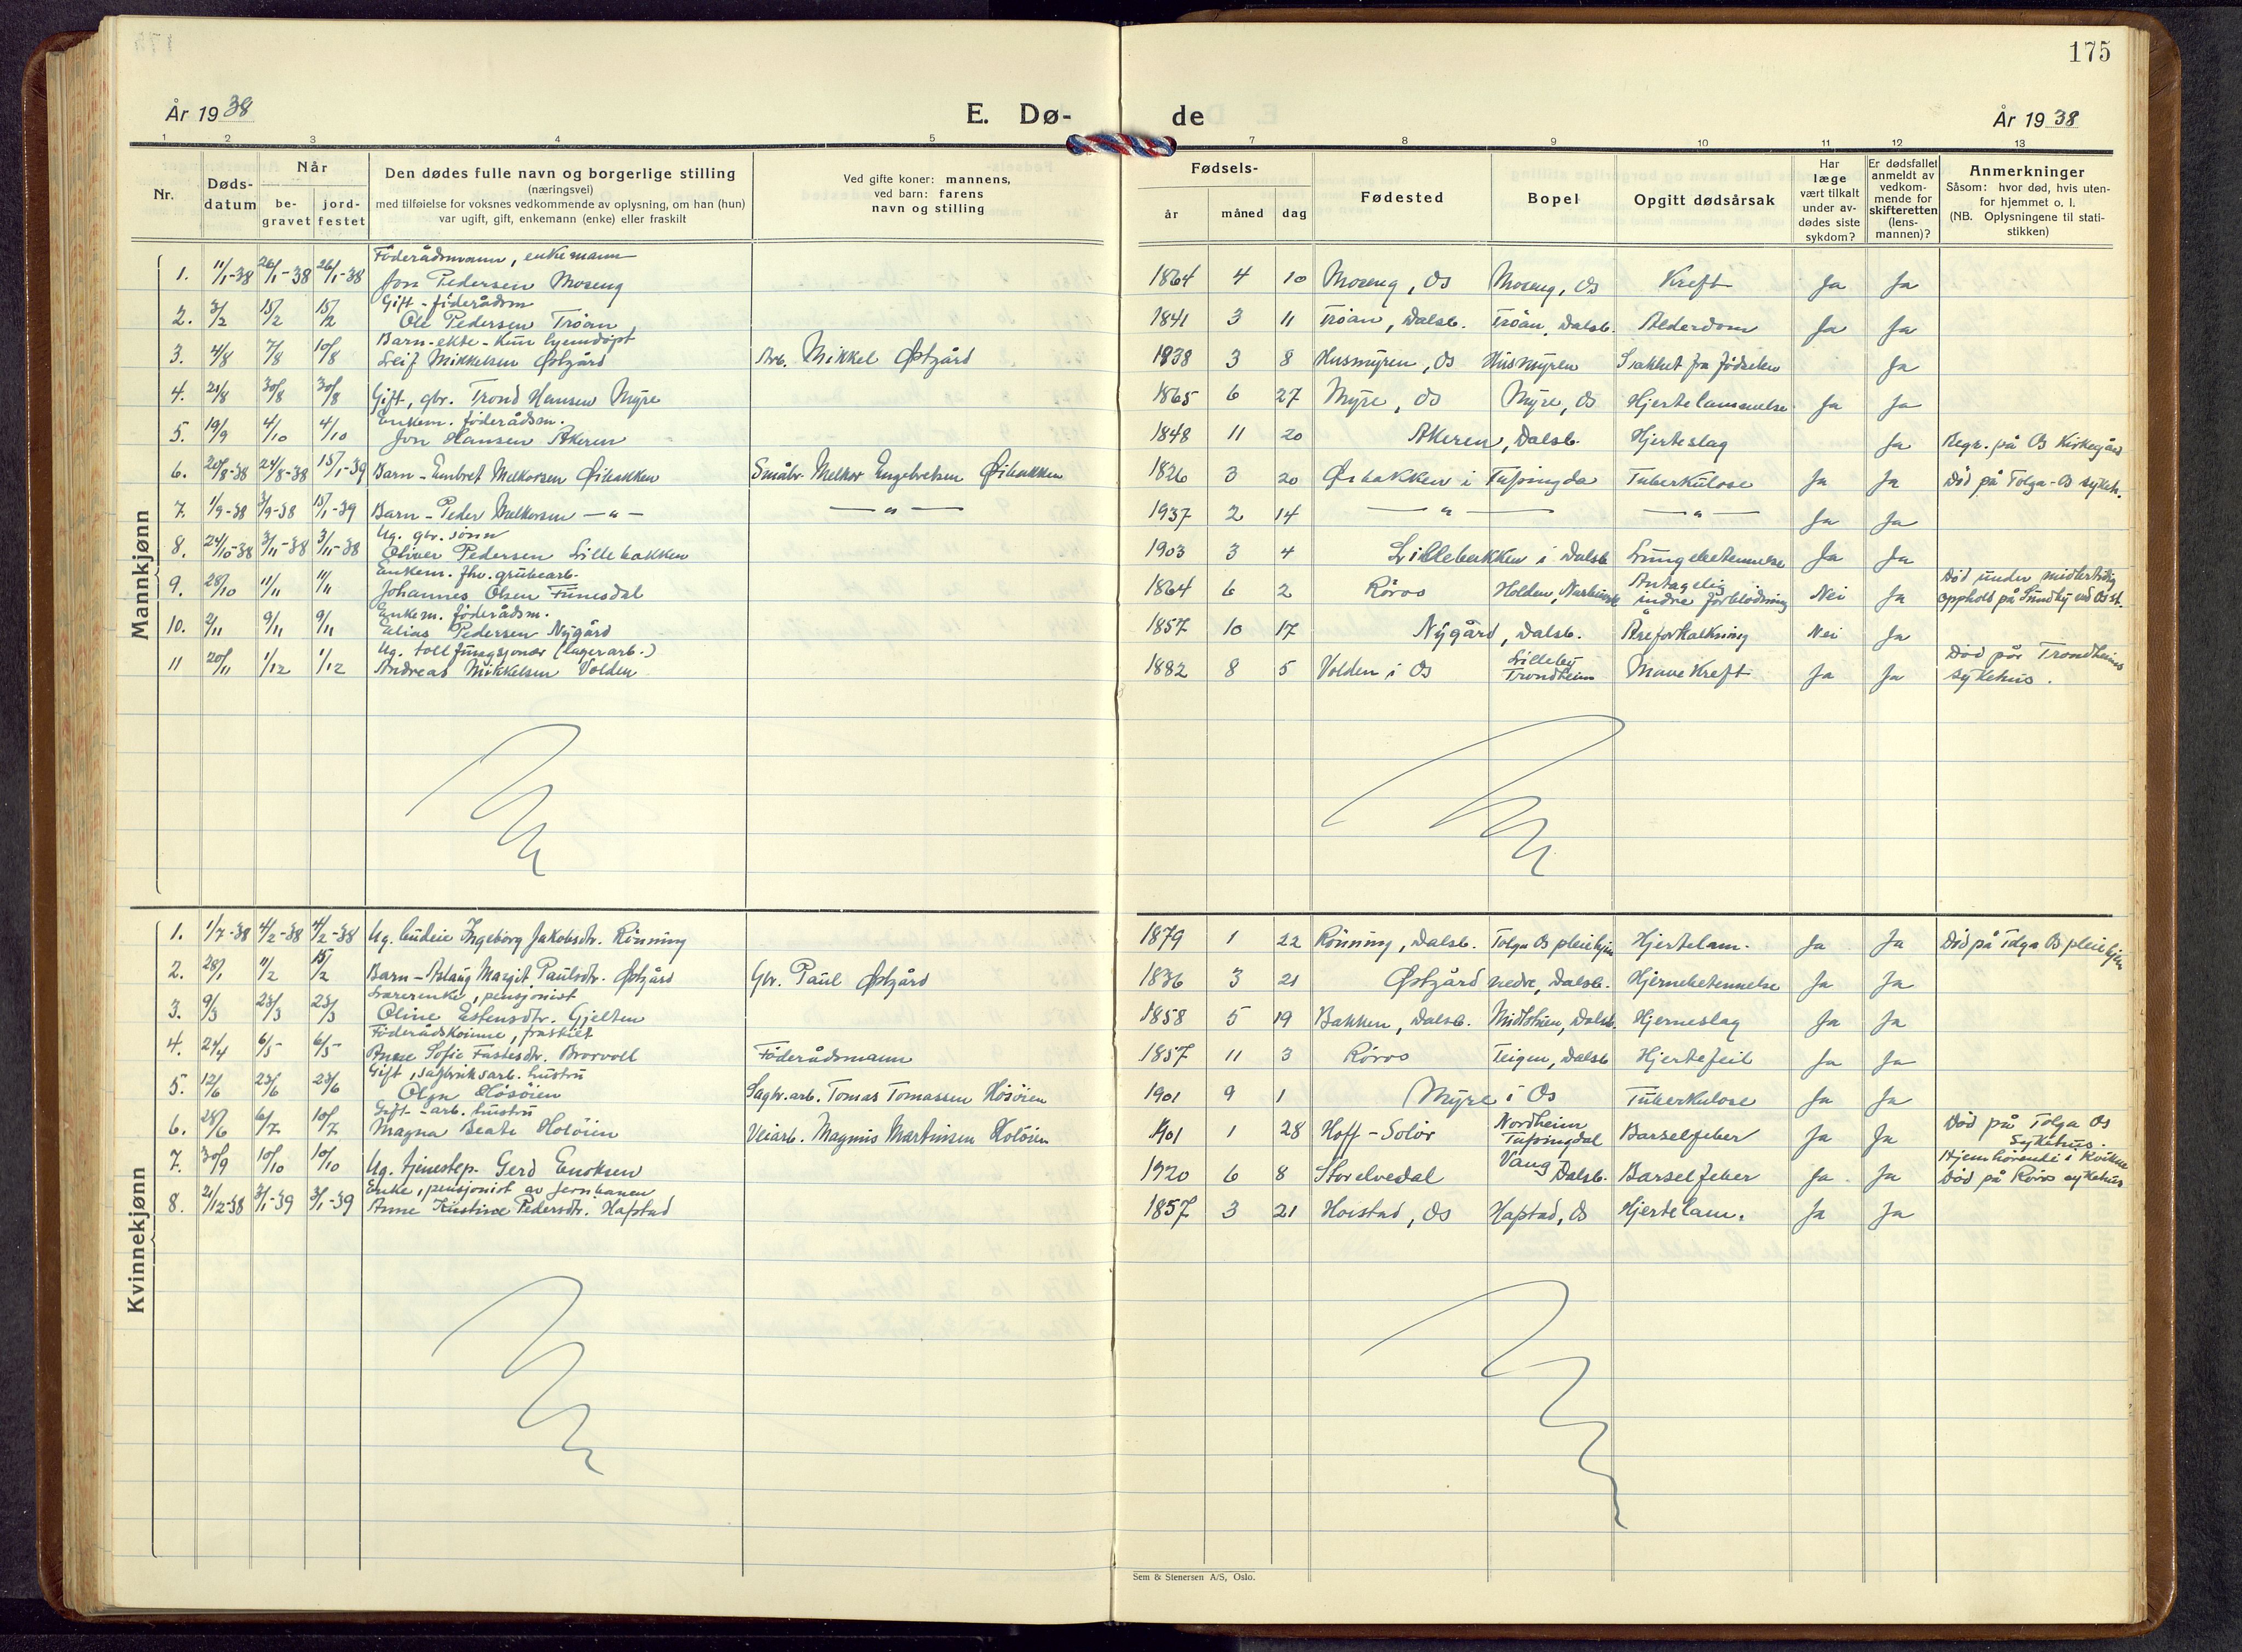 175
År 1938
E. Dø-
de
År 1938
1 2 3 4 5 7 8 9 10 11 12 13
Nr.
Døds-
datum
Når
be-
gravet
jord-
festet
Den dødes fulle navn og borgerlige stilling
(næringsvei)
med tilføielse for voksnes vedkommende av oplysning, om han (hun)
var ugift, gift, enkemann (enke) eller fraskilt
Ved gifte koner: mannens,
ved barn: farens
navn og stilling
Fødsels-
år måned dag
Fødested
Bopel
Opgitt dødsårsak
Har
læge
vært tilkalt
under av-
dødes siste
sykdom?
Er dødsfallet
anmeldt av
vedkom-
mende for
skifteretten
(lens-
mannen)?
Anmerkninger
Såsom: hvor død, hvis uten-
for hjemmet o. l.
(NB. Oplysningene til stati-
stikken)
Mannkjønn
Føderådsmann, enkemann
1. 11/1-38 26/1-38 26/1-38 Jon Pedersen Moseng 1864 4 10 Moseng, Os Moseng, Os Kreft Ja Ja
Gift - føderådsm
2. 3/2 15/2 15/2 Ole Pedersen Trøan 1841 3 11 Trøan, Dalsb. Trøan, Dalsb. Alderdom Ja Ja
Barn - ekte - Kun hjemdøpt
3. 4/8 7/8 10/8 Leif Mikkelsen Østgård Arb. Mikkel Østgård 1938 3 8 Husmyren, Os Husmyren Svakhet fra fødselen Ja
4. 21/8 30/8 30/8 Gift, gbr. Trond Hansen Myre 1865 6 27 Myre, Os Myre, Os Hjertelammelse Ja Ja
Enkem. føderådsm.
5. 19/9 4/10 4/10 Jon Hansen Akeren 1848 11 20 Akeren, Dalsb. Hjerteslag Ja Begr. på Os Kirkegård
6. 20/8-38 24/8-38 15/1-39 Barn - Embret Melkorsen Øibakken Småbr. Melkor Engebretsen Øibakken 1926 3 20 Øibakken i Tufsingda Tuberkulose Ja Ja Død på Tolga-Os sykeh.
7. 1/9-38 3/9-38 15/1-39 Barn - Peder Melkorsen — " — — " — 1937 2 14 — " — — " — Ja Ja
Ug. gbr. sønn
8. 24/10-38 3/11-38 3/11-38 Oliver Pedersen Lillebakken 1903 3 4 Lillebakken i Dalsb Lungebetennelse Ja Ja
Enkem. fhv. grubearb.
9. 28/10 11/11 11/11 Johannes Olsen Funesdal 1864 6 2 Røros Holden, Antagelig indre forblødning Nei Ja Død under midlertidig
opphold på Sundby ved Os st.
Enkem. føderådsm.
10. 2/11 9/11 9/11 Elias Pedersen Nygård 1857 10 17 Nygård, Dalsb. Åreforkalkning Nei Ja
Ug. tollfungsjonær (lagerarb.)
11 20/11 1/12 1/12 Andreas Mikkelsen Volden 1882 8 5 Volden i Os Lilleby Trondheim Mavekreft Ja Ja Død på Trondheims
sykehus.
Kvinnekjønn
1. 1/7-38 4/2-38 4/2-38 Ug. budeie Ingeborg Jakobsdtr. Rønning 1879 1 22 Rønning, Dalsb. Tolga Os pleiehjem Hjertelam. Ja Ja Død på Tolga Os pleiehjem
2. 28/1 11/2 15/2 Barn - Aslaug Margit Paulsdtr. Østgård Gbr. Paul Østgård 1936 3 21 Østgård nedre, Dalsb. Hjernebetennelse Ja Ja
Lærerenke, pensjonist
3. 9/3 23/3 23/3 Oline Estensdtr. Gjelten 1858 5 19 Bakken, Dalsb. Midtstuen, Dalsb. Hjerneslag Ja Ja
Føderådskonne, fraskilt
4. 24/4 6/5 6/5 Anne Sofie Fastesdtr. Brovoll Føderådsmann 1857 11 3 Røros Teigen, Dalsb Hjertefeil Ja Ja
Gift, sagbruksarb. hustru
5. 12/6 23/6 23/6 Olga Høsøien Sagbr. arb. Tomas Tomassen Høsøien 1901 9 1 Myre i Os Tuberkulose Ja Ja
Gift - arb. hustru
6. 28/6 6/7 10/7 Magna Beate Holøien Veiarb. Magnus Martinsen Holøien 1901 1 28 Hoff - Solør Nordheim Tufsingdal Barselfeber Ja Ja Død på Tolga Os
Sykehus.
7. 30/9 10/10 10/10 Ug. tjenestep. Gerd Enoksen 1920 6 8 Storelvedal Vang Dalsb. Barselfeber Ja Ja Hjemhørende i Kvikne
Død på Røros sykehus
Enke, pensjonist av jernbanen
8. 21/12-38 3/1-39 3/1-39 Anne Kristine Pedersdtr. Hafstad 1857 3 21 Horstad, Os Hafstad, Os Hjertelam. Ja Ja
Sem & Stenersen A/S, Oslo.